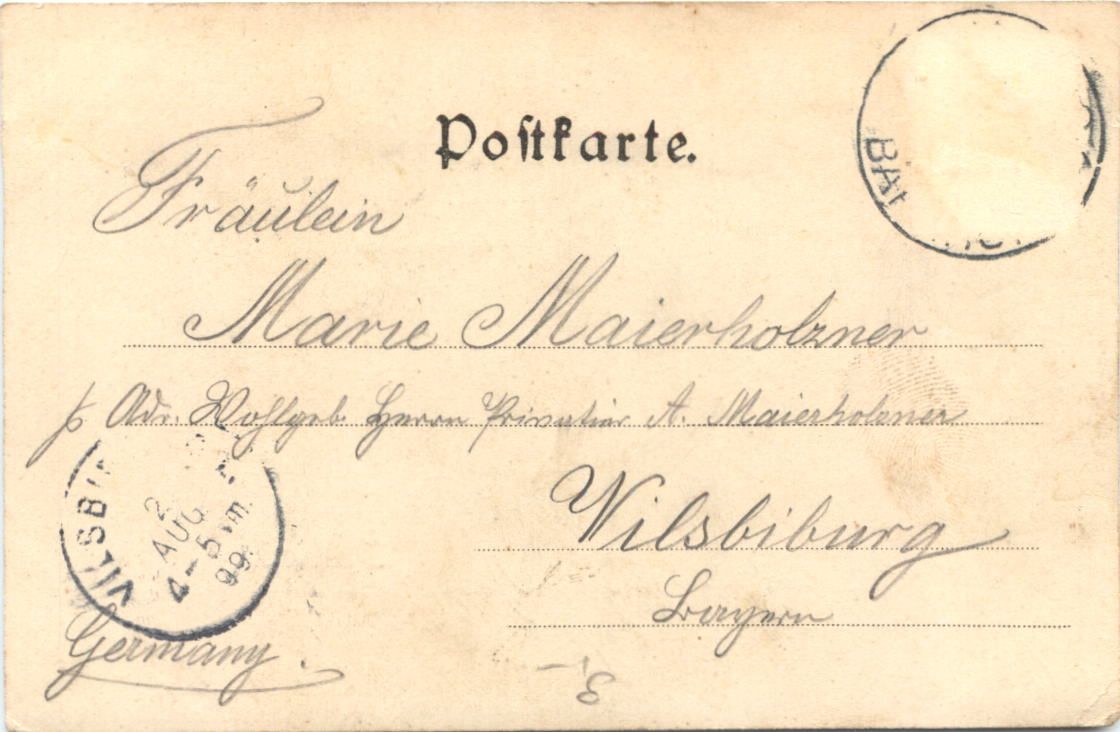 Postkarte.
Fräulein
Marie Maierholzner
p Adr. Wohlgeb. Herrn Privatier A. Maierholzner
Vilsbiburg
Bayern
Germany.
VILSBI
2
AUG
4-5 Nm.
99.
BA
3,-